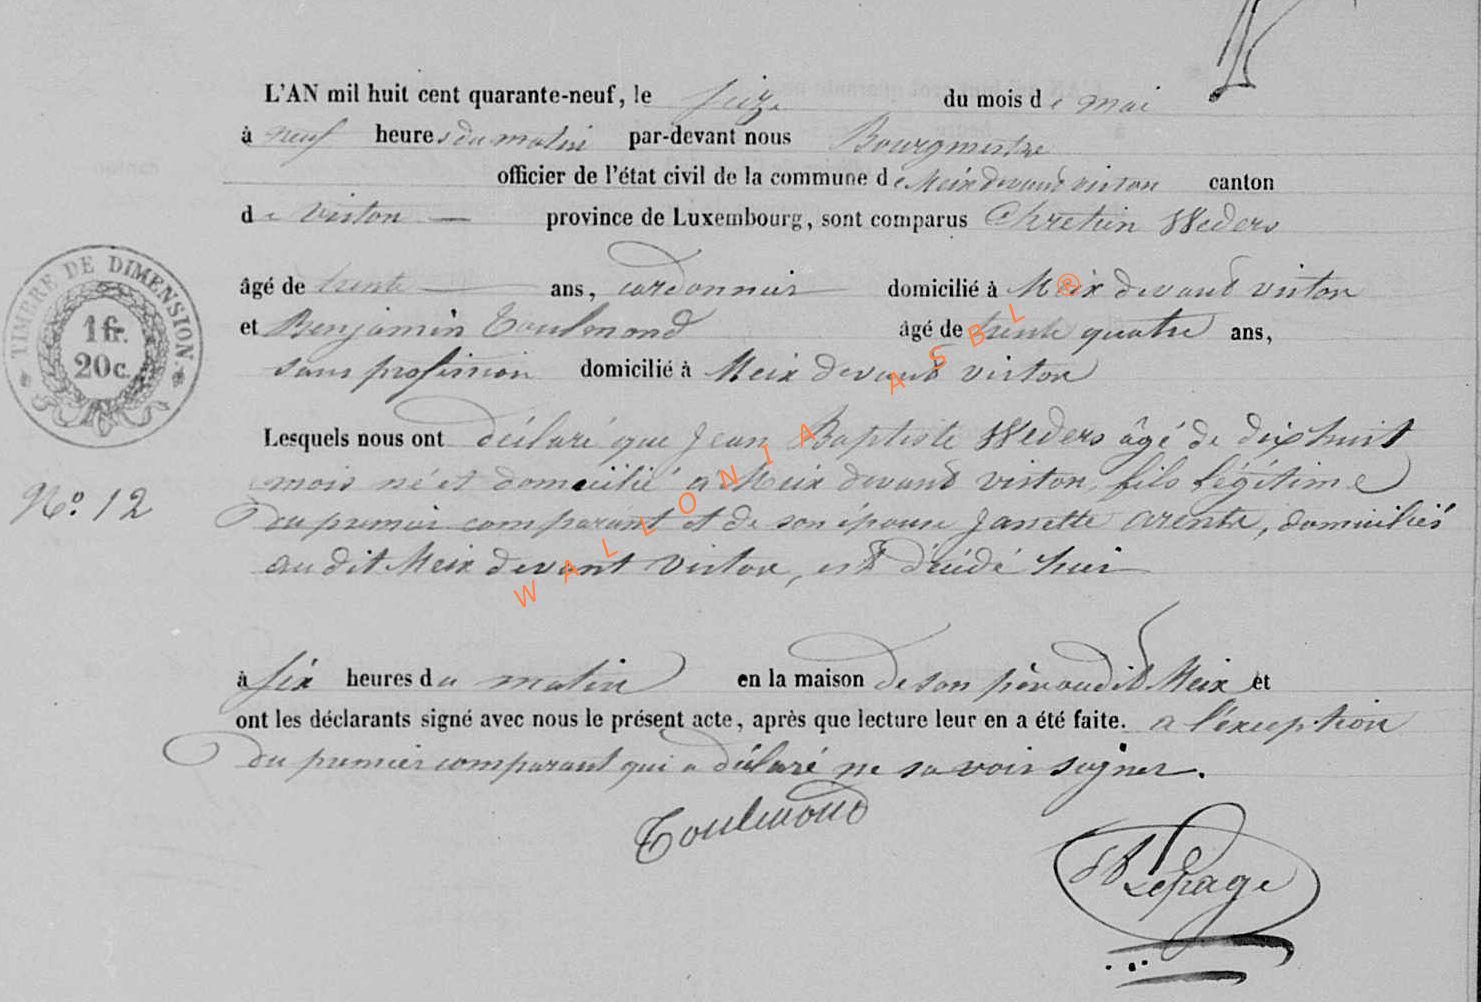 L'AN mil huit cent quarante-neuf, le seize du mois de mai
à neuf heures du matin par-devant nous Bourgmestre
officier de l'état civil de la commune de Meix devant virton canton
de virton — province de Luxembourg, sont comparus Chretien Weders
âgé de trente — ans, cordonnier domicilié à Meix devant virton
et Benjamin Toulmond âgé de trente quatre ans,
sans profession domicilié à Meix devant virton
TIMBRE DE DIMENSION.
1 fr.
20c.
Lesquels nous ont déclaré que Jean Baptiste Weders âgé de dix huit
mois né et domicilié a Meix devant virton, fils légitime
N.º 12
du premier comparant et de son épouse Janette arente, domiciliés
audit Meix devant Virton, est décédé hier
à six heures du matin en la maison de son père audit Meix et
ont les déclarants signé avec nous le présent acte, après que lecture leur en a été faite. a l'exception
du premier comparant qui a déclaré ne savoir signer.
Toulmond
Lepage
WALLONIA ASBL ®